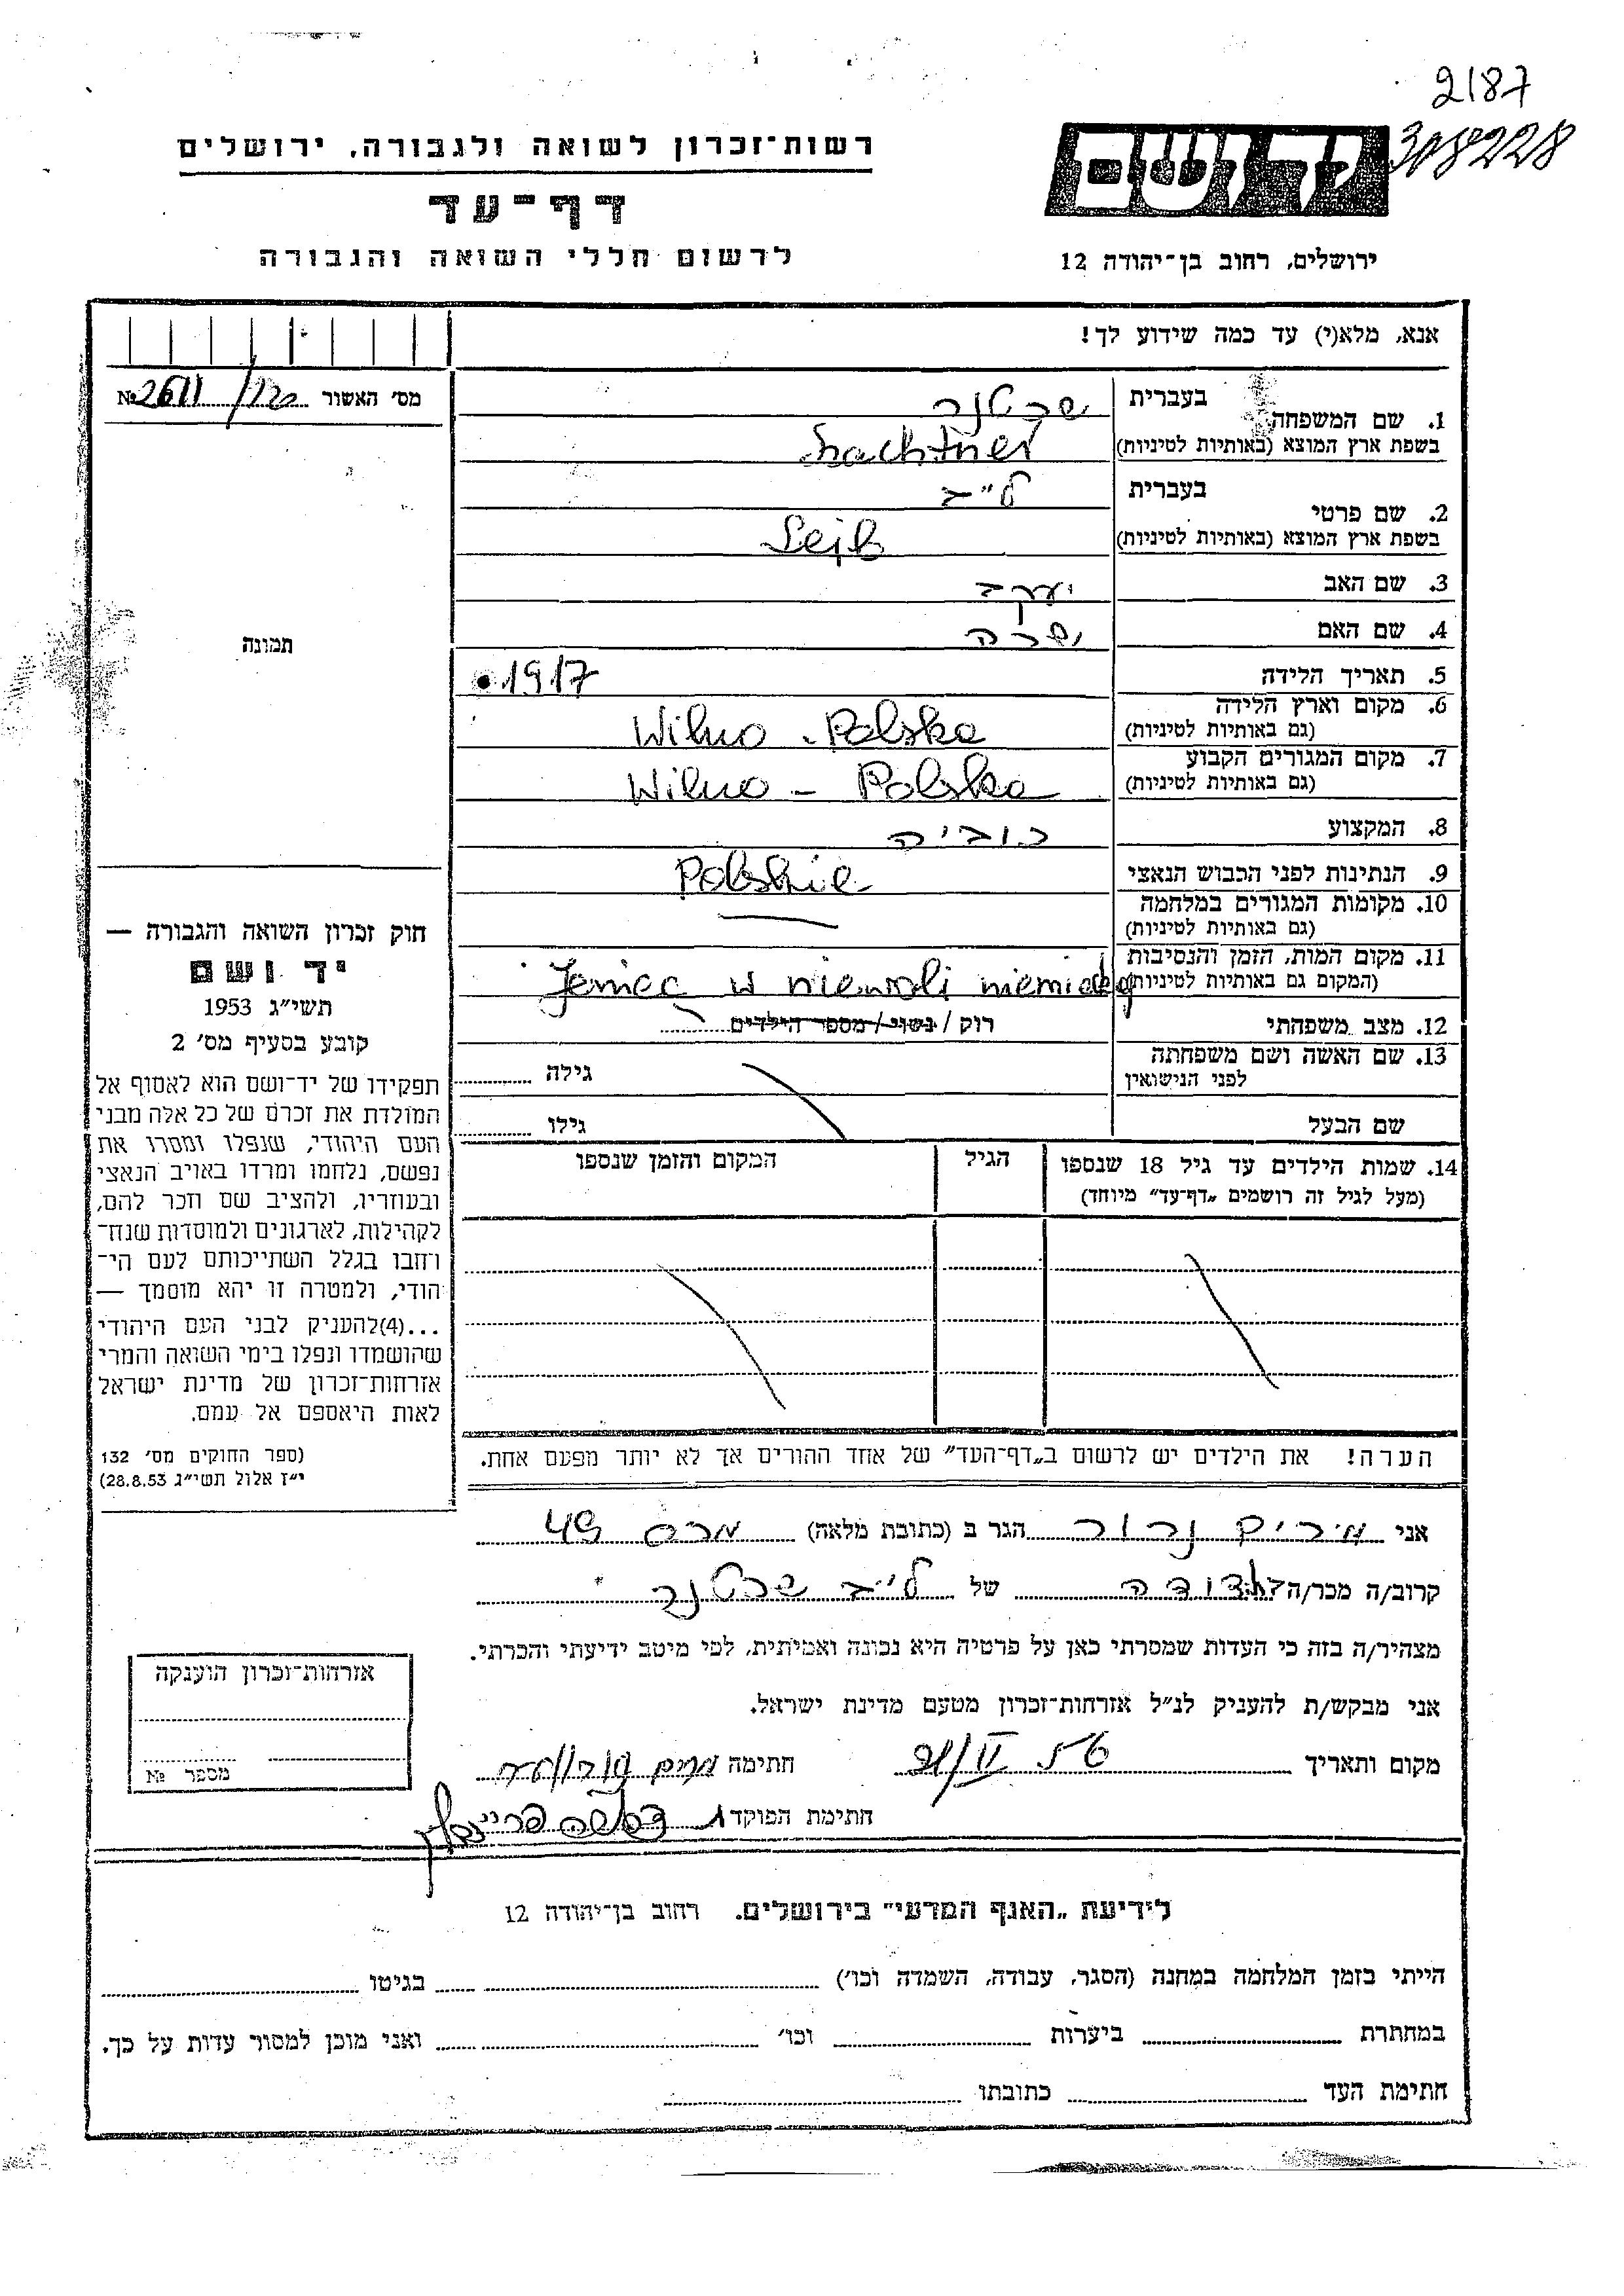 2187
308228
יד ושם
רשות־זכרון לשואה ולגבורה, ירושלים
דף־עד
לרשום חללי השואה והגבורה
ירושלים, רחוב בן־יהודה 12
אנא, מלא(י) עד כמה שידוע לך!
מס׳ האשור № 2611
1. שם המשפחה בעברית שכטנר
בשפת ארץ המוצא (באותיות לטיניות) Szachtner
2. שם פרטי בעברית לייב
בשפת ארץ המוצא (באותיות לטיניות) Lejb
3. שם האב יעקב
4. שם האם שרה
תמונה
5. תאריך הלידה 1917
6. מקום וארץ הלידה (גם באותיות לטיניות) Wilno - Polska
7. מקום המגורים הקבוע (גם באותיות לטיניות) Wilno - Polska
8. המקצוע
9. הנתינות לפני הכבוש הנאצי Polskie
10. מקומות המגורים במלחמה (גם באותיות לטיניות) —
11. מקום המות, הזמן והנסיבות (המקום גם באותיות לטיניות) Jeniec w niewoli
12. מצב משפחתי רוק / נשוי / מספר הילדים
13. שם האשה ושם משפחתה לפני הנישואין גילה
שם הבעל גילו
14. שמות הילדים עד גיל 18 שנספו הגיל המקום והזמן שנספו
(מעל לגיל זה רושמים „דף־עד״ מיוחד)
חוק זכרון השואה והגבורה —
יד ושם
תשי״ג 1953
קובע בסעיף מס׳ 2
תפקידו של יד־ושם הוא לאסוף אל
המולדת את זכרם של כל אלה מבני
העם היהודי, שנפלו ומסרו את
נפשם, נלחמו ומרדו באויב הנאצי
ובעוזריו, ולהציב שם וזכר להם,
לקהילות, לארגונים ולמוסדות שנח־
רחבו בגלל השתייכותם לעם הי־
הודי, ולמטרה זו יהא מוסמך —
...(4)להעניק לבני העם היהודי
שהושמדו ונפלו בימי השואה והמרי
אזרחות־זכרון של מדינת ישראל
לאות היאספם אל עמם.
(ספר החוקים מס׳ 132
י״ז אלול תשי״ג 28.8.53)
הערה! את הילדים יש לרשום ב„דף־העד״ של אחד ההורים אך לא יותר מפעם אחת.
אני מרים הגר ב (כתובת מלאה) 49
קרוב/ה מכר/ה דודה של לייב שכטנר
מצהיר/ה בזה כי העדות שמסרתי כאן על פרטיה היא נכונה ואמיתית, לפי מיטב ידיעתי והכרתי.
אני מבקש/ת להעניק לנ״ל אזרחות־זכרון מטעם מדינת ישראל.
מקום ותאריך 56 חתימה מרים
חתימת הפוקד
אזרחות־זכרון הוענקה
מספר №
לידיעת „האגף המדעי״ בירושלים. רחוב בן־יהודה 12
הייתי בזמן המלחמה במחנה (הסגר, עבודה, השמדה וכו׳) בגיטו
במחתרת ביערות וכו׳ ואני מוכן למסור עדות על כך.
חתימת העד כתובתו